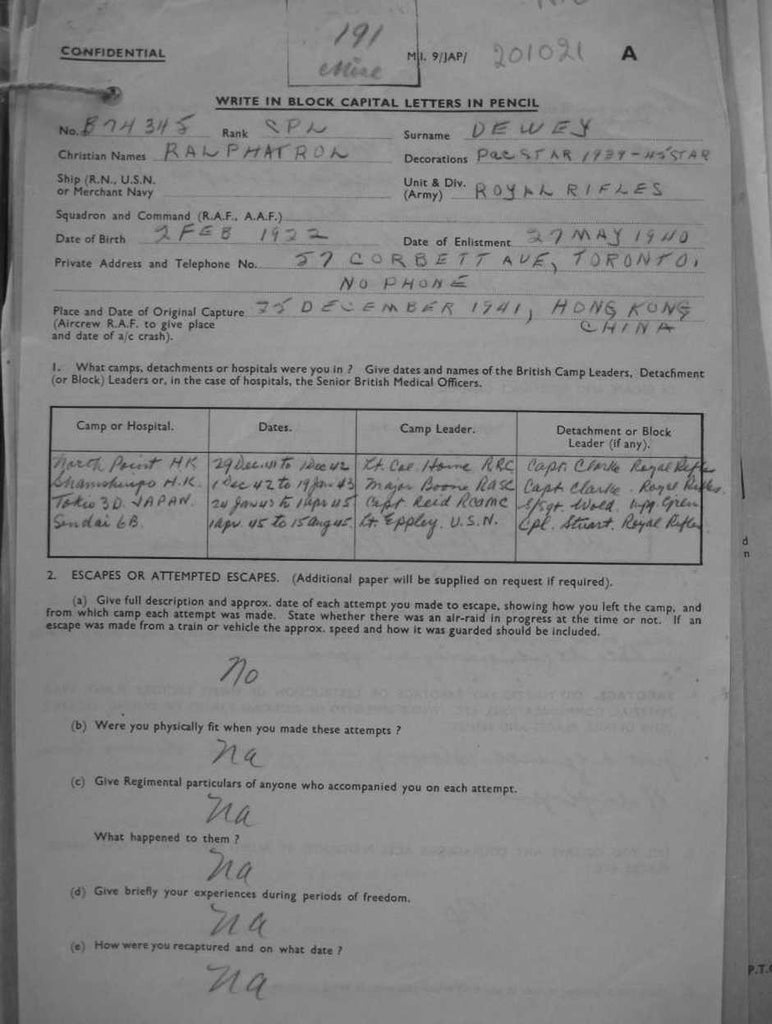 191
CONFIDENTIAL
M.I. 9/JAP/ 201021 A
WRITE IN BLOCK CAPITAL LETTERS IN PENCIL
No. B74345 Rank CPL Surname DEWEY
Christian Names RALPHATROL Decorations Pac STAR 1939-45 STAR
Ship (R.N., U.S.N.
or Merchant Navy
Unit & Div.
(Army) ROYAL RIFLES
Squadron and Command (R.A.F., A.A.F.)
Date of Birth 2 FEB 1922 Date of Enlistment 27 MAY 1940
Private Address and Telephone No. 57 CORBETT AVE, TORONTO.
NO PHONE
Place and Date of Original Capture 25 DECEMBER 1941, HONG KONG
(Aircrew R.A.F. to give place CHINA
and date of a/c crash).
1. What camps, detachments or hospitals were you in ? Give dates and names of the British Camp Leaders, Detachment
(or Block) Leaders or, in the case of hospitals, the Senior British Medical Officers.
Camp or Hospital. Dates. Camp Leader. Detachment or Block
Leader (if any).
North Point HK 29 Dec. 41 to 1 Dec 42 Lt. Col. Home RRC Capt. Clarke Royal Rifles
Shamshuipo H.K. 1 Dec 42 to 19 Jan 43 Major Boone RASC Capt Clarke. Royal Rifles
Tokio 3D. JAPAN. 20 Jan 43 to 1 Apr 45 Capt Reid RCAMC S/Sgt. Wpg Gren
Sendai 6B. 1 Apr. 45 to 15 Aug 45. Lt. Eppley. U.S.N. Cpl. Stuart. Royal Rifles
2. ESCAPES OR ATTEMPTED ESCAPES. (Additional paper will be supplied on request if required).
(a) Give full description and approx. date of each attempt you made to escape, showing how you left the camp, and
from which camp each attempt was made. State whether there was an air-raid in progress at the time or not. If an
escape was made from a train or vehicle the approx. speed and how it was guarded should be included.
No
(b) Were you physically fit when you made these attempts ?
Na
(c) Give Regimental particulars of anyone who accompanied you on each attempt.
Na
What happened to them ?
Na
(d) Give briefly your experiences during periods of freedom.
Na
(e) How were you recaptured and on what date ?
Na
P.T.